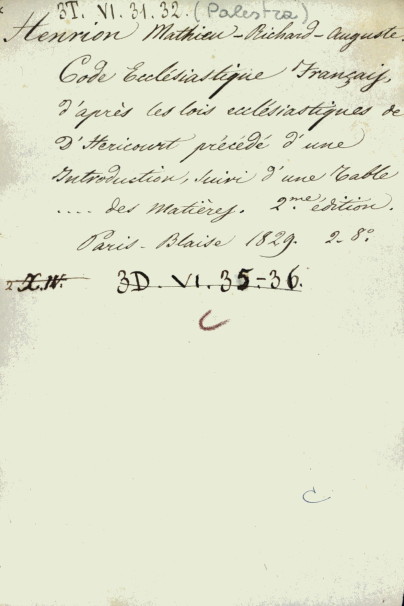 3T. VI. 31. 32. (Palestra)
Henrion Mathieu-Richard-Auguste.
Code Ecclésiastique Français,
d'après les lois ecclésiastiques de
D'Héricourt précédé d'une
Introduction, suivi d'une Table
.... des Matières. 2.me édition.
Paris-Blaise 1829. 2-8.o
3D. VI. 35-36.
C
C